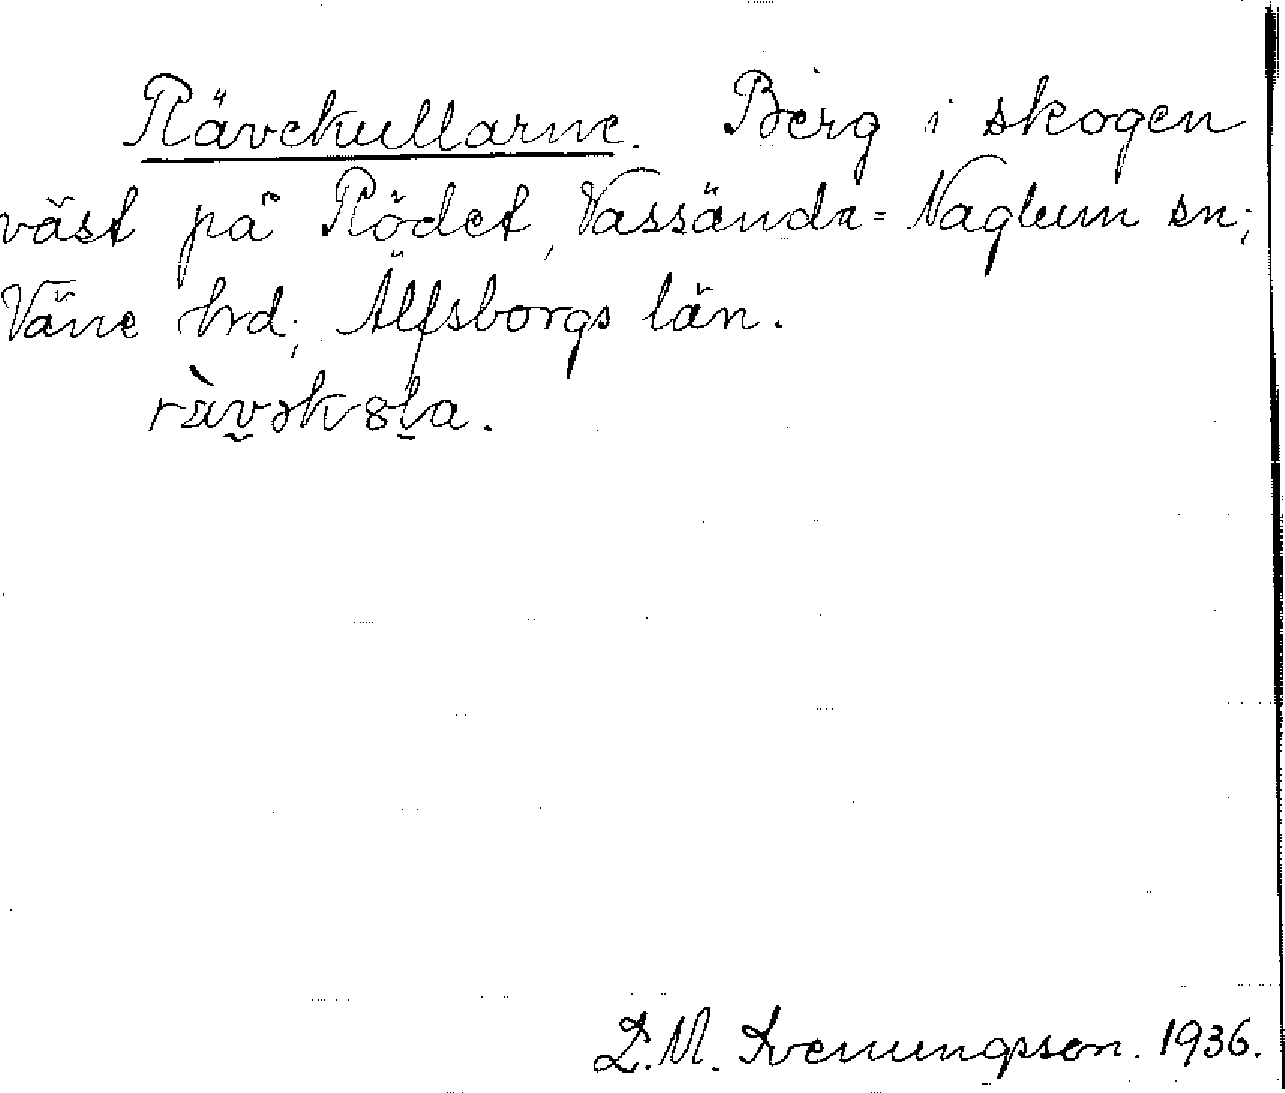 Rävekullarne. Berg i skogen
väst på Rödet, Vassända-Naglum sn;
Väne hrd; Älfsborgs län.
ràvəkɞla.
D.M. Svenungsson. 1936.